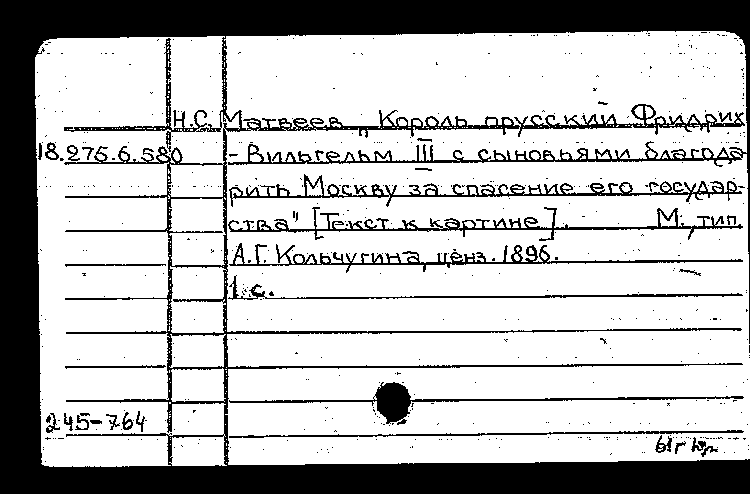 Н.С. Матвеев „Король прусский Фридрих
18.275.6.580 - Вильгельм III с сыновьями благода
рить Москву за спасение его государ-
ства" [Текст к картине]. М., тип.
А.Г. Кольчугина, ценз. 1896.
1 с.
245-764
61г